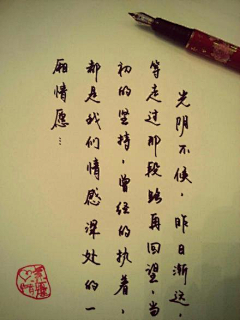 光阴不候，昨日渐远，
等走过那段路再回望，当
初的坚持，曾经的执着，
都是我们情感深处的一
厢情愿…